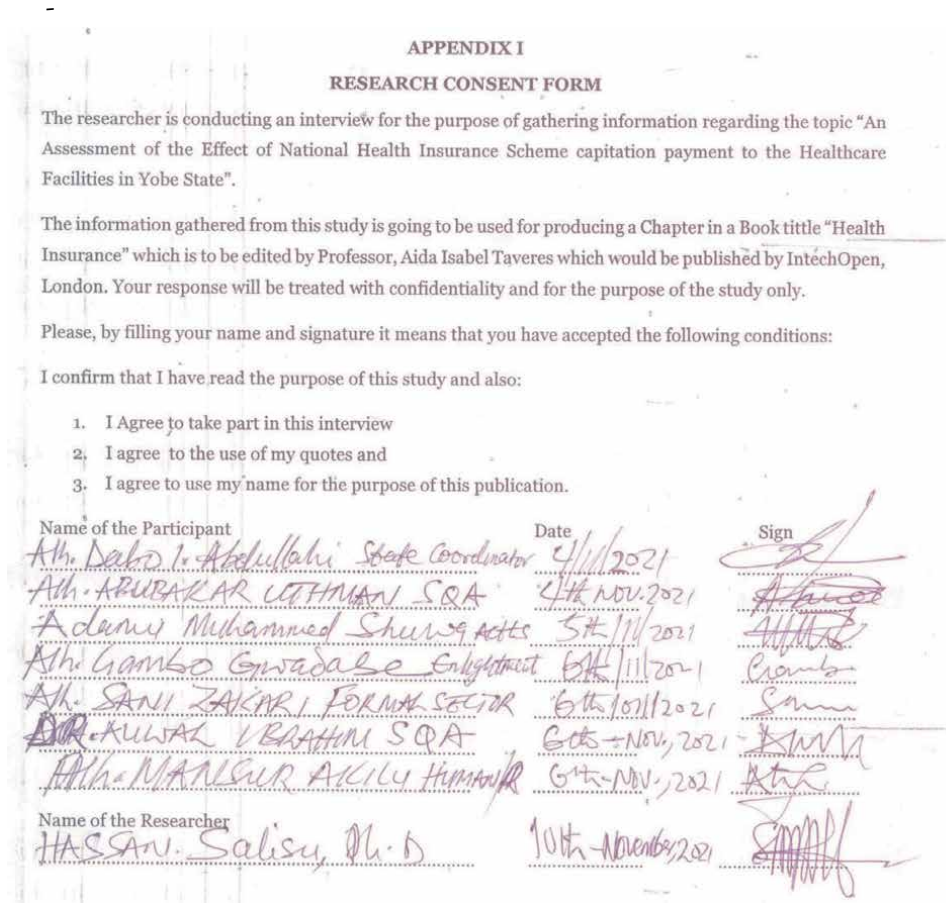 APPENDIX I
RESEARCH CONSENT FORM
The researcher is conducting an interview for the purpose of gathering information regarding the topic “An
Assessment of the Effect of National Health Insurance Scheme capitation payment to the Healthcare
Facilities in Yobe State”.
The information gathered from this study is going to be used for producing a Chapter in a Book tittle “Health
Insurance” which is to be edited by Professor, Aida Isabel Taveres which would be published by IntechOpen,
London. Your response will be treated with confidentiality and for the purpose of the study only.
Please, by filling your name and signature it means that you have accepted the following conditions:
I confirm that I have read the purpose of this study and also:
1. I Agree to take part in this interview
2. I agree to the use of my quotes and
3. I agree to use my name for the purpose of this publication.
Name of the Participant Date Sign
Alh. Dabo I. Abdullahi State Coordinator 4/11/2021
Alh. ABUBAKAR UTHMAN SQA 4th NOV. 2021
Adamu Muhammed Shuwa 5th/11/2021
Alh. Gambo Gwadabe 6th/11/2021 Gambo
Alh. SANI ZAKARI FORMAL SECTOR 6th/011/2021
DR. AUWAL IBRAHIM SQA 6th-NOV., 2021
Alh. MANSUR HUMAN/R 6th-NOV., 2021
Name of the Researcher
HASSAN. Salisu, Ph.D 10th-November, 2021